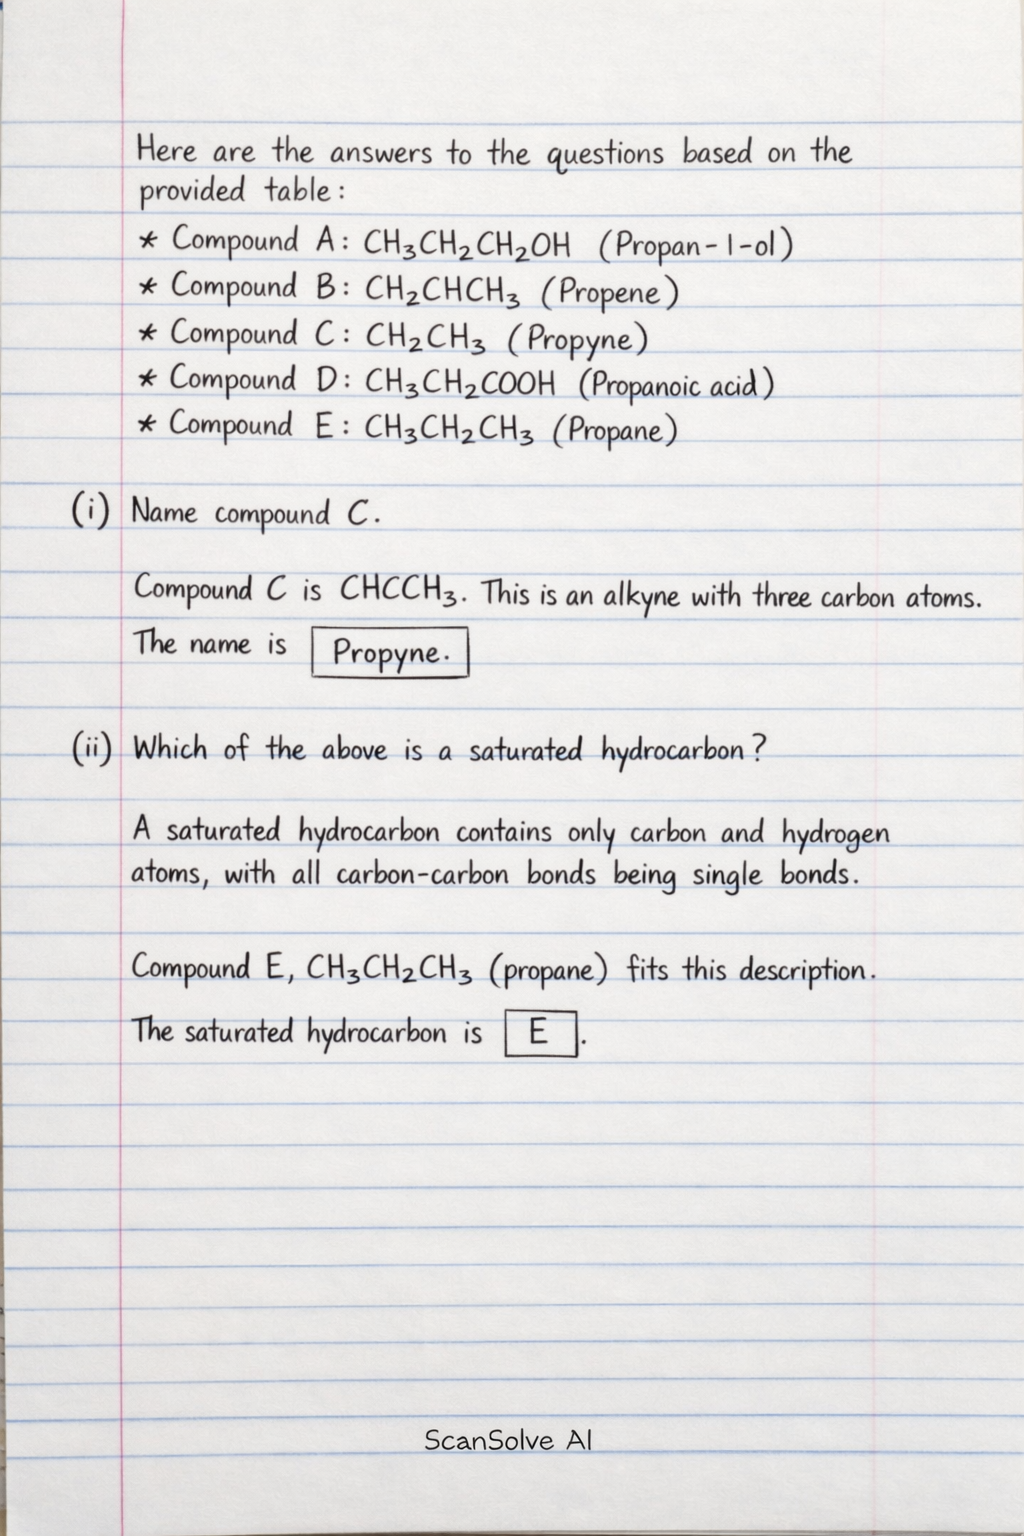 Here are the answers to the questions based on the
provided table:
* Compound A: CH₃CH₂CH₂OH (Propan-1-ol)
* Compound B: CH₂CHCH₃ (Propene)
* Compound C: CH₂CH₃ (Propyne)
* Compound D: CH₃CH₂COOH (Propanoic acid)
* Compound E: CH₃CH₂CH₃ (Propane)
(i) Name compound C.
Compound C is CHCCH₃. This is an alkyne with three carbon atoms.
The name is Propyne.
(ii) Which of the above is a saturated hydrocarbon?
A saturated hydrocarbon contains only carbon and hydrogen
atoms, with all carbon-carbon bonds being single bonds.
Compound E, CH₃CH₂CH₃ (propane) fits this description.
The saturated hydrocarbon is E.
ScanSolve AI